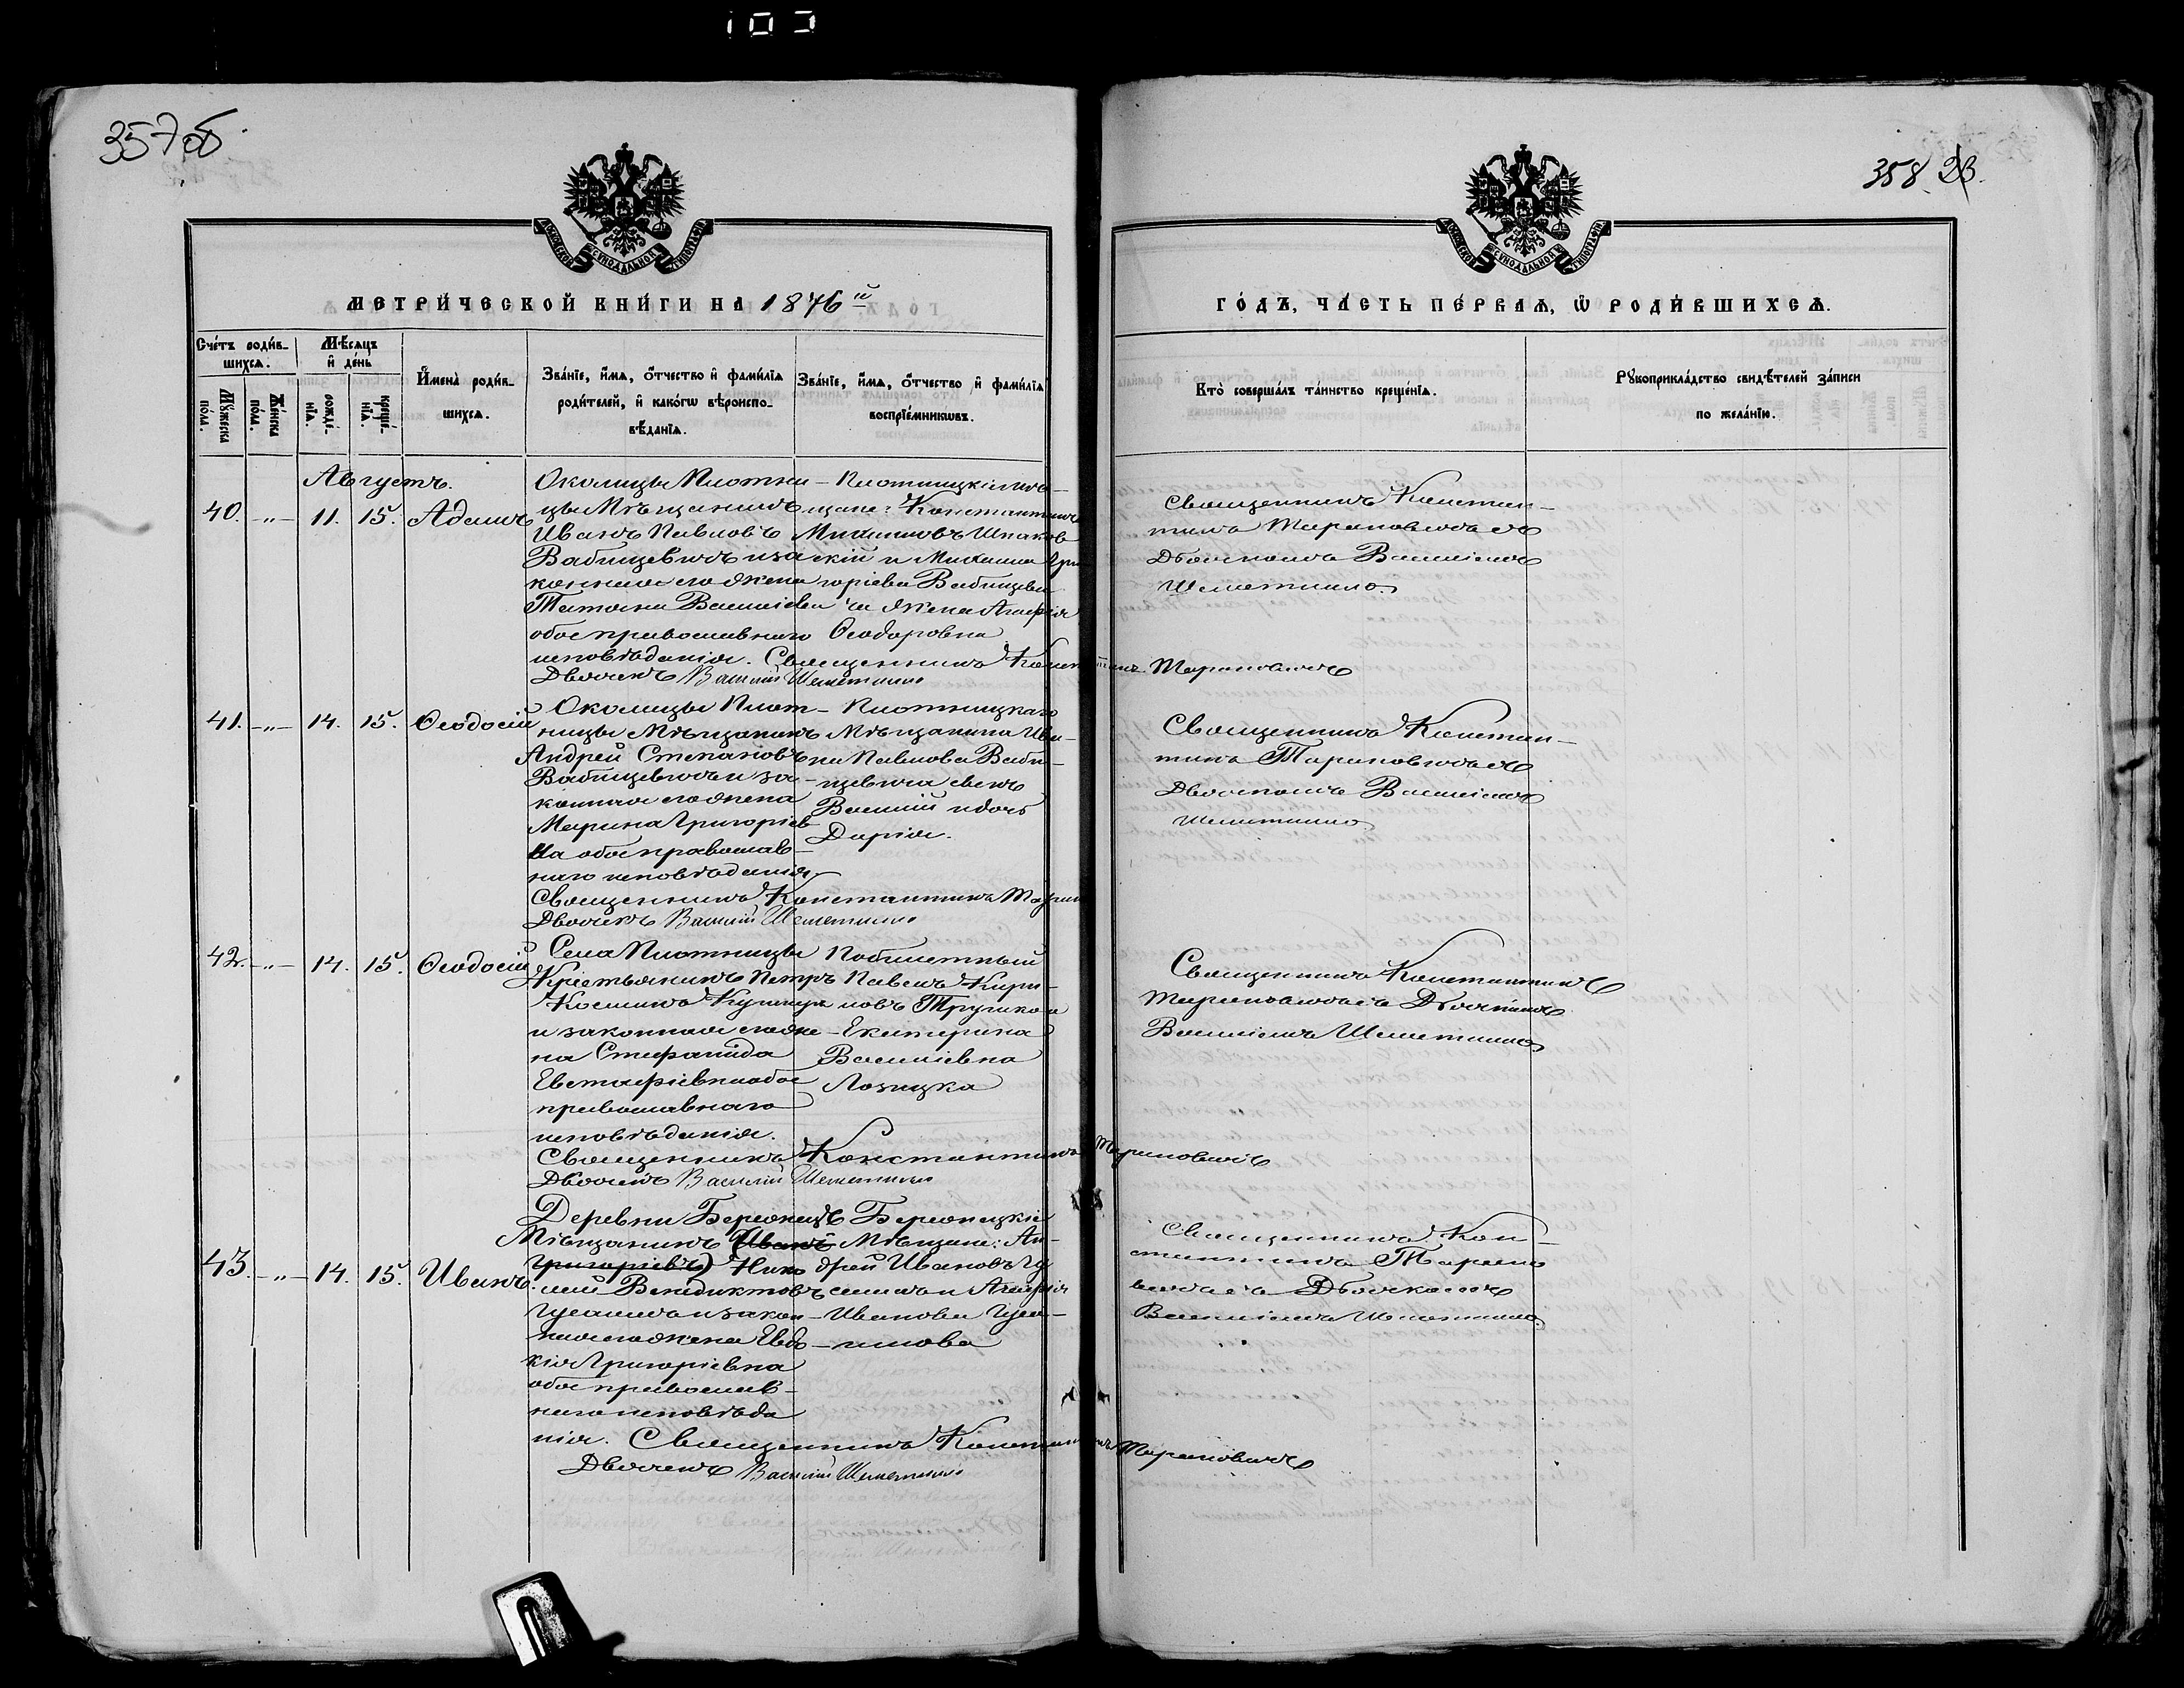 357об.
358. 23.
МОСКОВСКОЙ СѴНОДАЛЬНОЙ ТИПОГРАФІИ
МОСКОВСКОЙ СѴНОДАЛЬНОЙ ТИПОГРАФІИ
МЕТРИ́ЧЕСКОЙ КНИ́ГИ НА 1876й
ГО́ДЪ, ЧА́СТЬ ПЕ́РВАѦ, Ѡ҆ РОДИ́ВШИХСѦ.
Сче́тъ роди́в-
шихсѧ.
Мꙋ́жеска по́ла.
Же́нска по́ла.
Мѣ́сѧцъ
и҆ де́нь
рожде́-
нїѧ.
креще́-
нїѧ.
И҆мена̀ роди́в-
шихсѧ.
Зва́нїе, и҆́мѧ, ѻ҆́тчество и҆ фами́лїѧ
роди́телей, и҆ како́гѡ вѣроиспо-
вѣ́данїѧ.
Зва́нїе, и҆́мѧ, ѻ҆́тчество и҆ фами́лїѧ
воспрїе́мникѡвъ.
Кто̀ соверша́лъ та́инство креще́нїѧ.
Рꙋкоприкла́дство свидѣ́телей за́писи
по жела́нїю.
Августъ.
40. -"- 11. 15. Адамъ
Околицы Плотни-
цы Мѣщанинъ
Иванъ Павловъ
Вабищевичъ и за
конная его жена
Татьяна Василіева
обое православнаго
исповѣданія. Священникъ Константинъ Тарановичъ
Дьячекъ Василій Шеметилло
Плотницкіе мѣ-
щане: Константинъ
Михаиловъ Шпаков
скій и Михаила Гри
горіева Вабищеви
ча жена Агафія
Ѳеодоровна
Священникъ Констан-
тинъ Тарановичъ съ
Дьячкомъ Василіемъ
Шеметилло.
41. -"- 14. 15. Ѳеодосій
Околицы Плот-
ницы Мѣщанинъ
Андрей Степановъ
Вабищевичъ и за-
конная его жена
Марина Григоріев
на обое православ-
наго исповѣданія.
Священникъ Константинъ Таран
Дьячекъ Василій Шеметилло
Плотницкаго
Мѣщанина Ива-
на Павлова Ваби-
щевича сынъ
Василій и дочь
Дарія.
Священникъ Констан-
тинъ Тарановичъ съ
Дьячкомъ Василіемъ
Шеметилло.
42. -"- 14. 15. Ѳеодосій
Села Плотницы
Крестьянинъ Петръ
Косьминъ
и законная его же-
на Стефанида
Евстафіевна обое
православнаго
исповѣданія.
Священникъ Константинъ Тарановичъ
Дьячекъ Василій Шеметилло
Побилетный
Павелъ Кири-
ловъ
Екатерина
Василіевна
Лозицка
Священникъ Константинъ
Тарановичъ съ Дьячкомъ
Василіемъ Шеметилло
43. -"- 14. 15. Иванъ.
Деревни Бережецъ
Мѣщанинъ (Иванъ
Григоріевъ) Нико
лай Венедиктовъ
и закон-
ная его жена Евдо-
кія Григоріевна
обое православ-
наго исповѣда
нія. Священникъ Константинъ Тарановичъ
Дьячекъ Василій Шеметилло
Бережецкіе
Мѣщане: Ан-
дрей Ивановъ
и Агафія
Иванова
Священникъ Кон-
стантинъ Тарано
вичъ съ Дьячкомъ
Василіемъ Шеметилло.